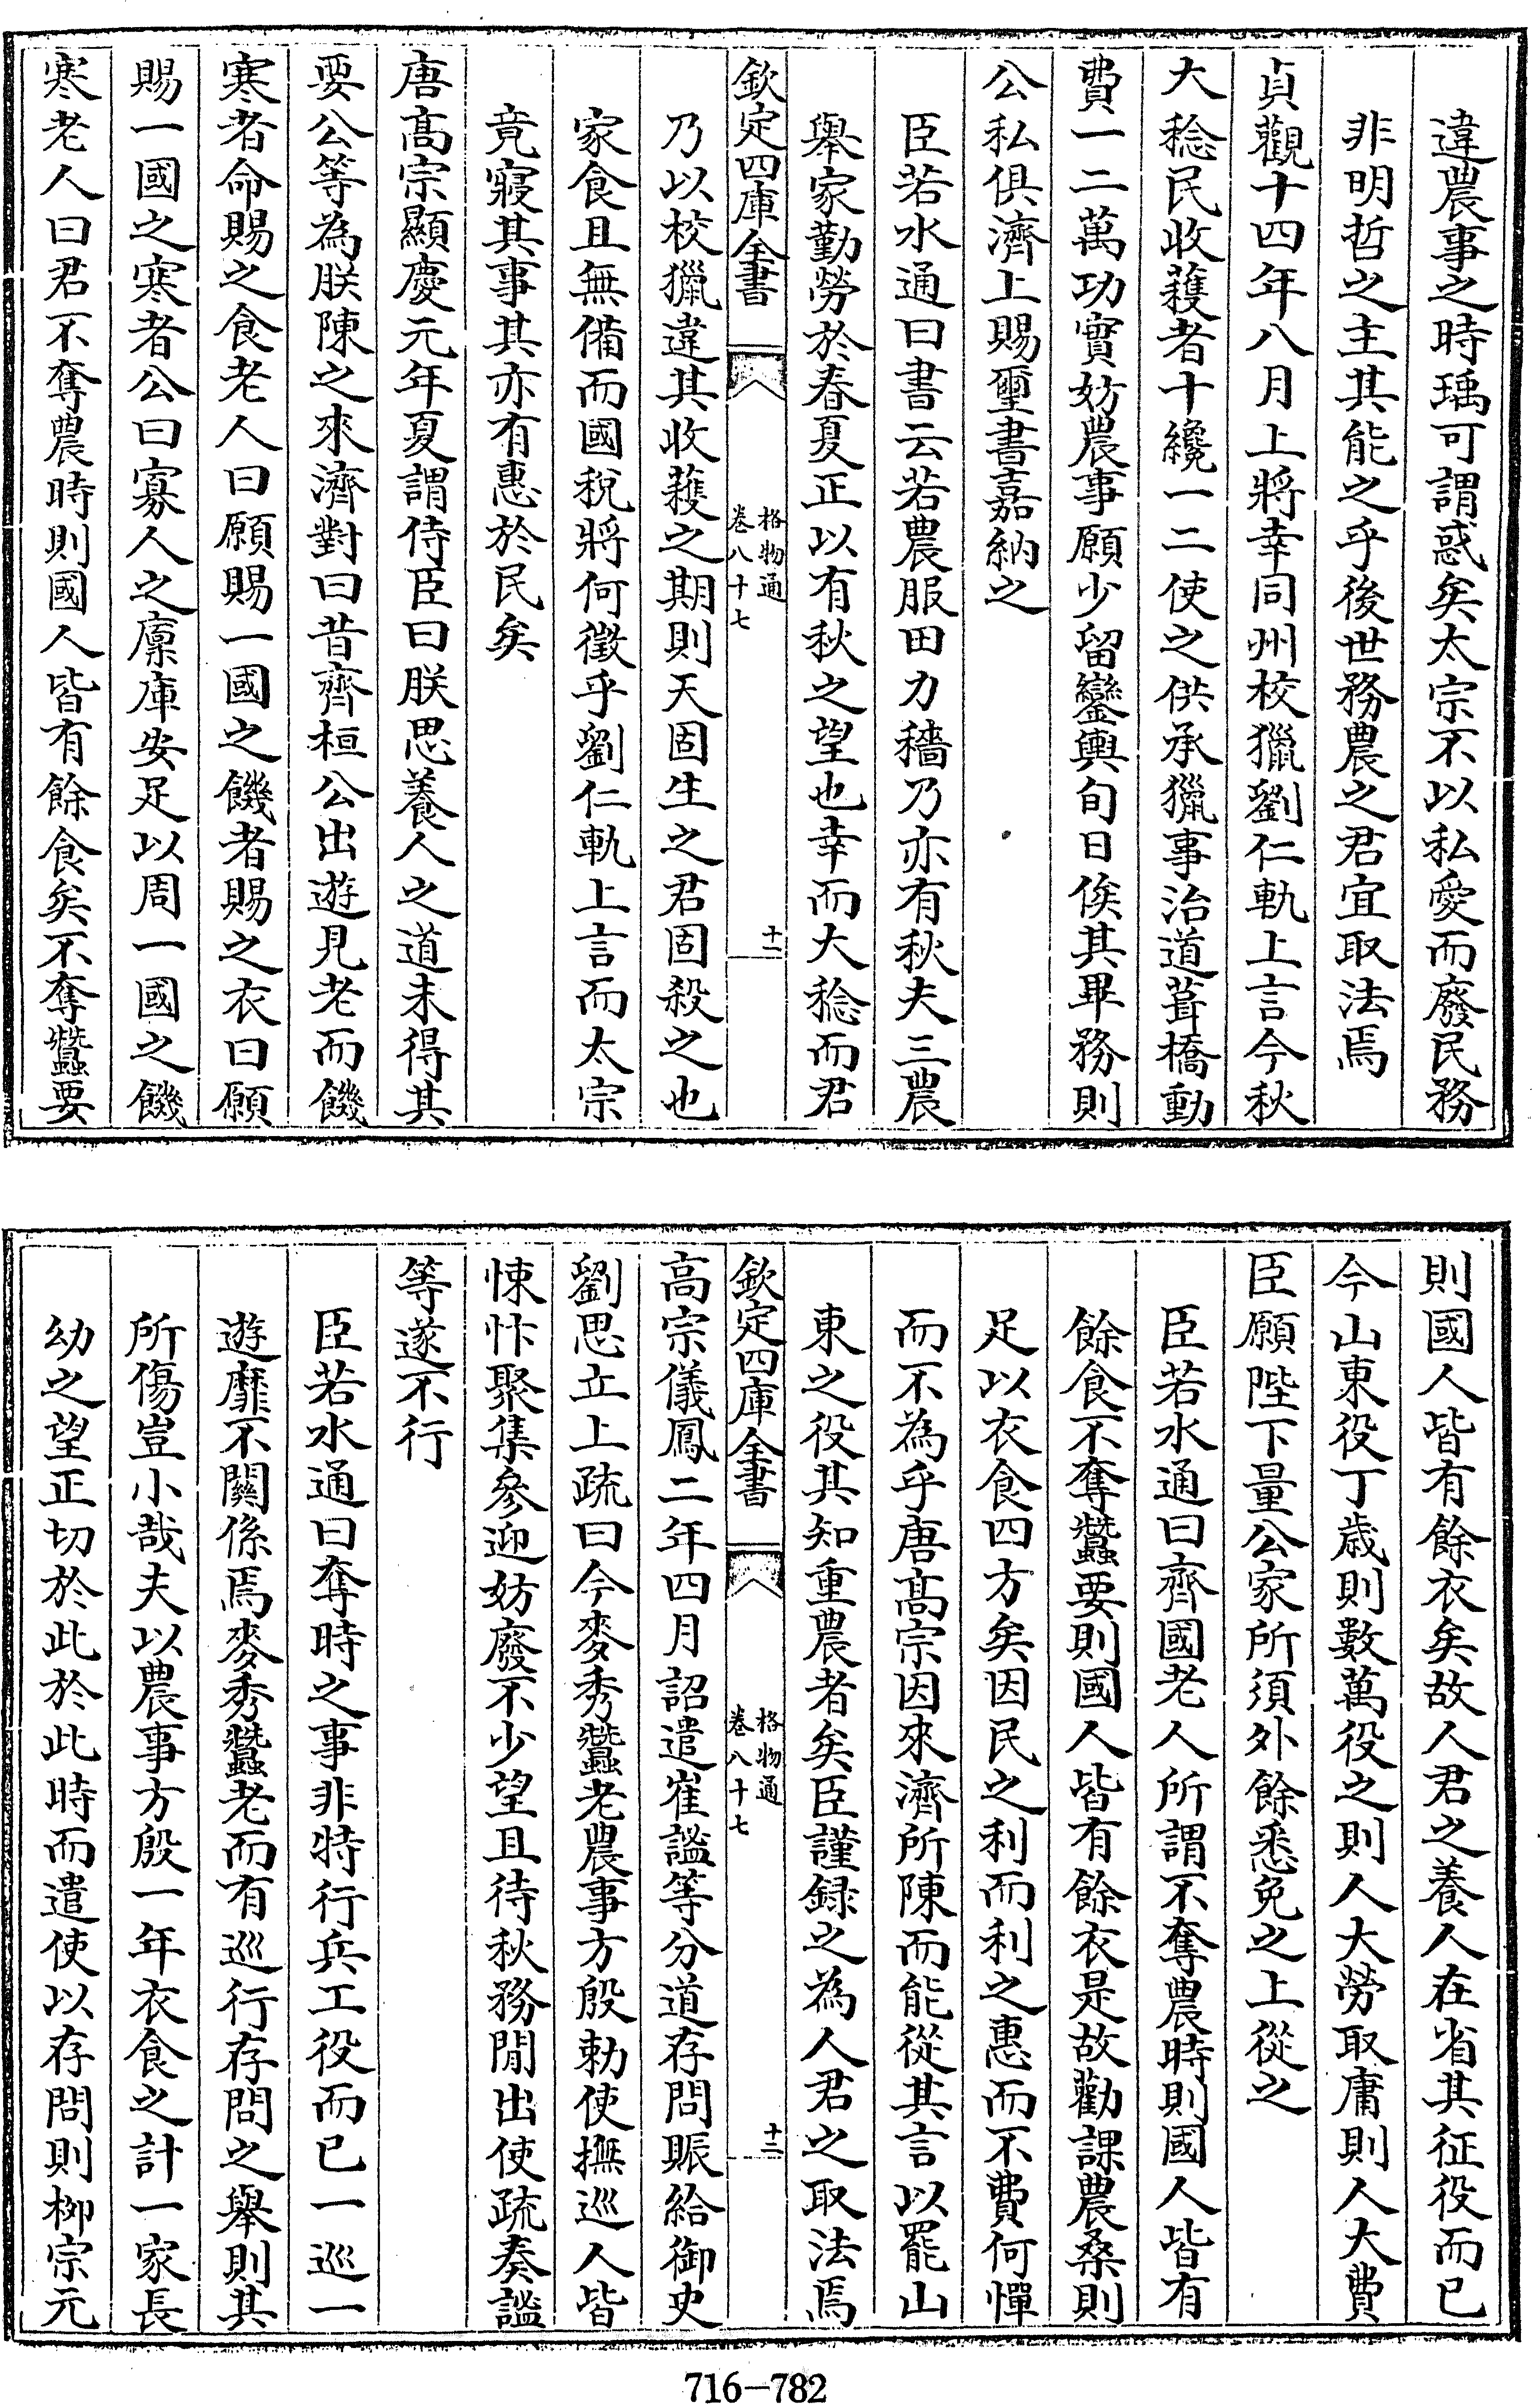 違農事之時瑀可謂惑矣太宗不以私愛而廢民務
非明哲之主其能之乎後世務農之君宜取法焉
貞觀十四年八月上將幸同州校獵劉仁軌上言今秋
大稔民收穫者十纔一二使之供承獵事治道葺橋動
費一二萬功實妨農事願少留鑾輿旬日俟其畢務則
公私俱濟上賜璽書嘉納之
臣若水通曰書云若農服田力穡乃亦有秋夫三農
舉家勤勞於春夏正以有秋之望也幸而大稔而君
欽定四庫全書
格物通
卷八十七
十一
乃以校獵違其收穫之期則天固生之君固殺之也
家食且無備而國稅將何徵乎劉仁軌上言而太宗
竟寢其事其亦有惠於民矣
唐髙宗顯慶元年夏謂侍臣曰朕思養人之道未得其
要公等為朕陳之來濟對曰昔齊桓公出遊見老而饑
寒者命賜之食老人曰願賜一國之饑者賜之衣曰願
賜一國之寒者公曰寡人之廪庫安足以周一國之饑
寒老人曰君不奪農時則國人皆有餘食矣不奪蠶要
則國人皆有餘衣矣故人君之養人在省其征役而已
今山東役丁歲則數萬役之則人大勞取庸則人大費
臣願陛下量公家所須外餘悉免之上從之
臣若水通曰齊國老人所謂不奪農時則國人皆有
餘食不奪蠶要則國人皆有餘衣是故勸課農桑則
足以衣食四方矣因民之利而利之惠而不費何憚
而不為乎唐髙宗因來濟所陳而能從其言以罷山
東之役其知重農者矣臣謹録之為人君之取法焉
欽定四庫全書
格物通
卷八十七
十二
高宗儀鳳二年四月詔遣崔謐等分道存問賑給御史
劉思立上疏曰今麥秀蠶老農事方殷勅使撫巡人皆
悚忭聚集參迎妨廢不少望且待秋務閒出使疏奏謐
等遂不行
臣若水通曰奪時之事非特行兵工役而已一巡一
遊靡不關係焉麥秀蠶老而有巡行存問之舉則其
所傷豈小哉夫以農事方殷一年衣食之計一家長
幼之望正切於此於此時而遣使以存問則柳宗元
716-782